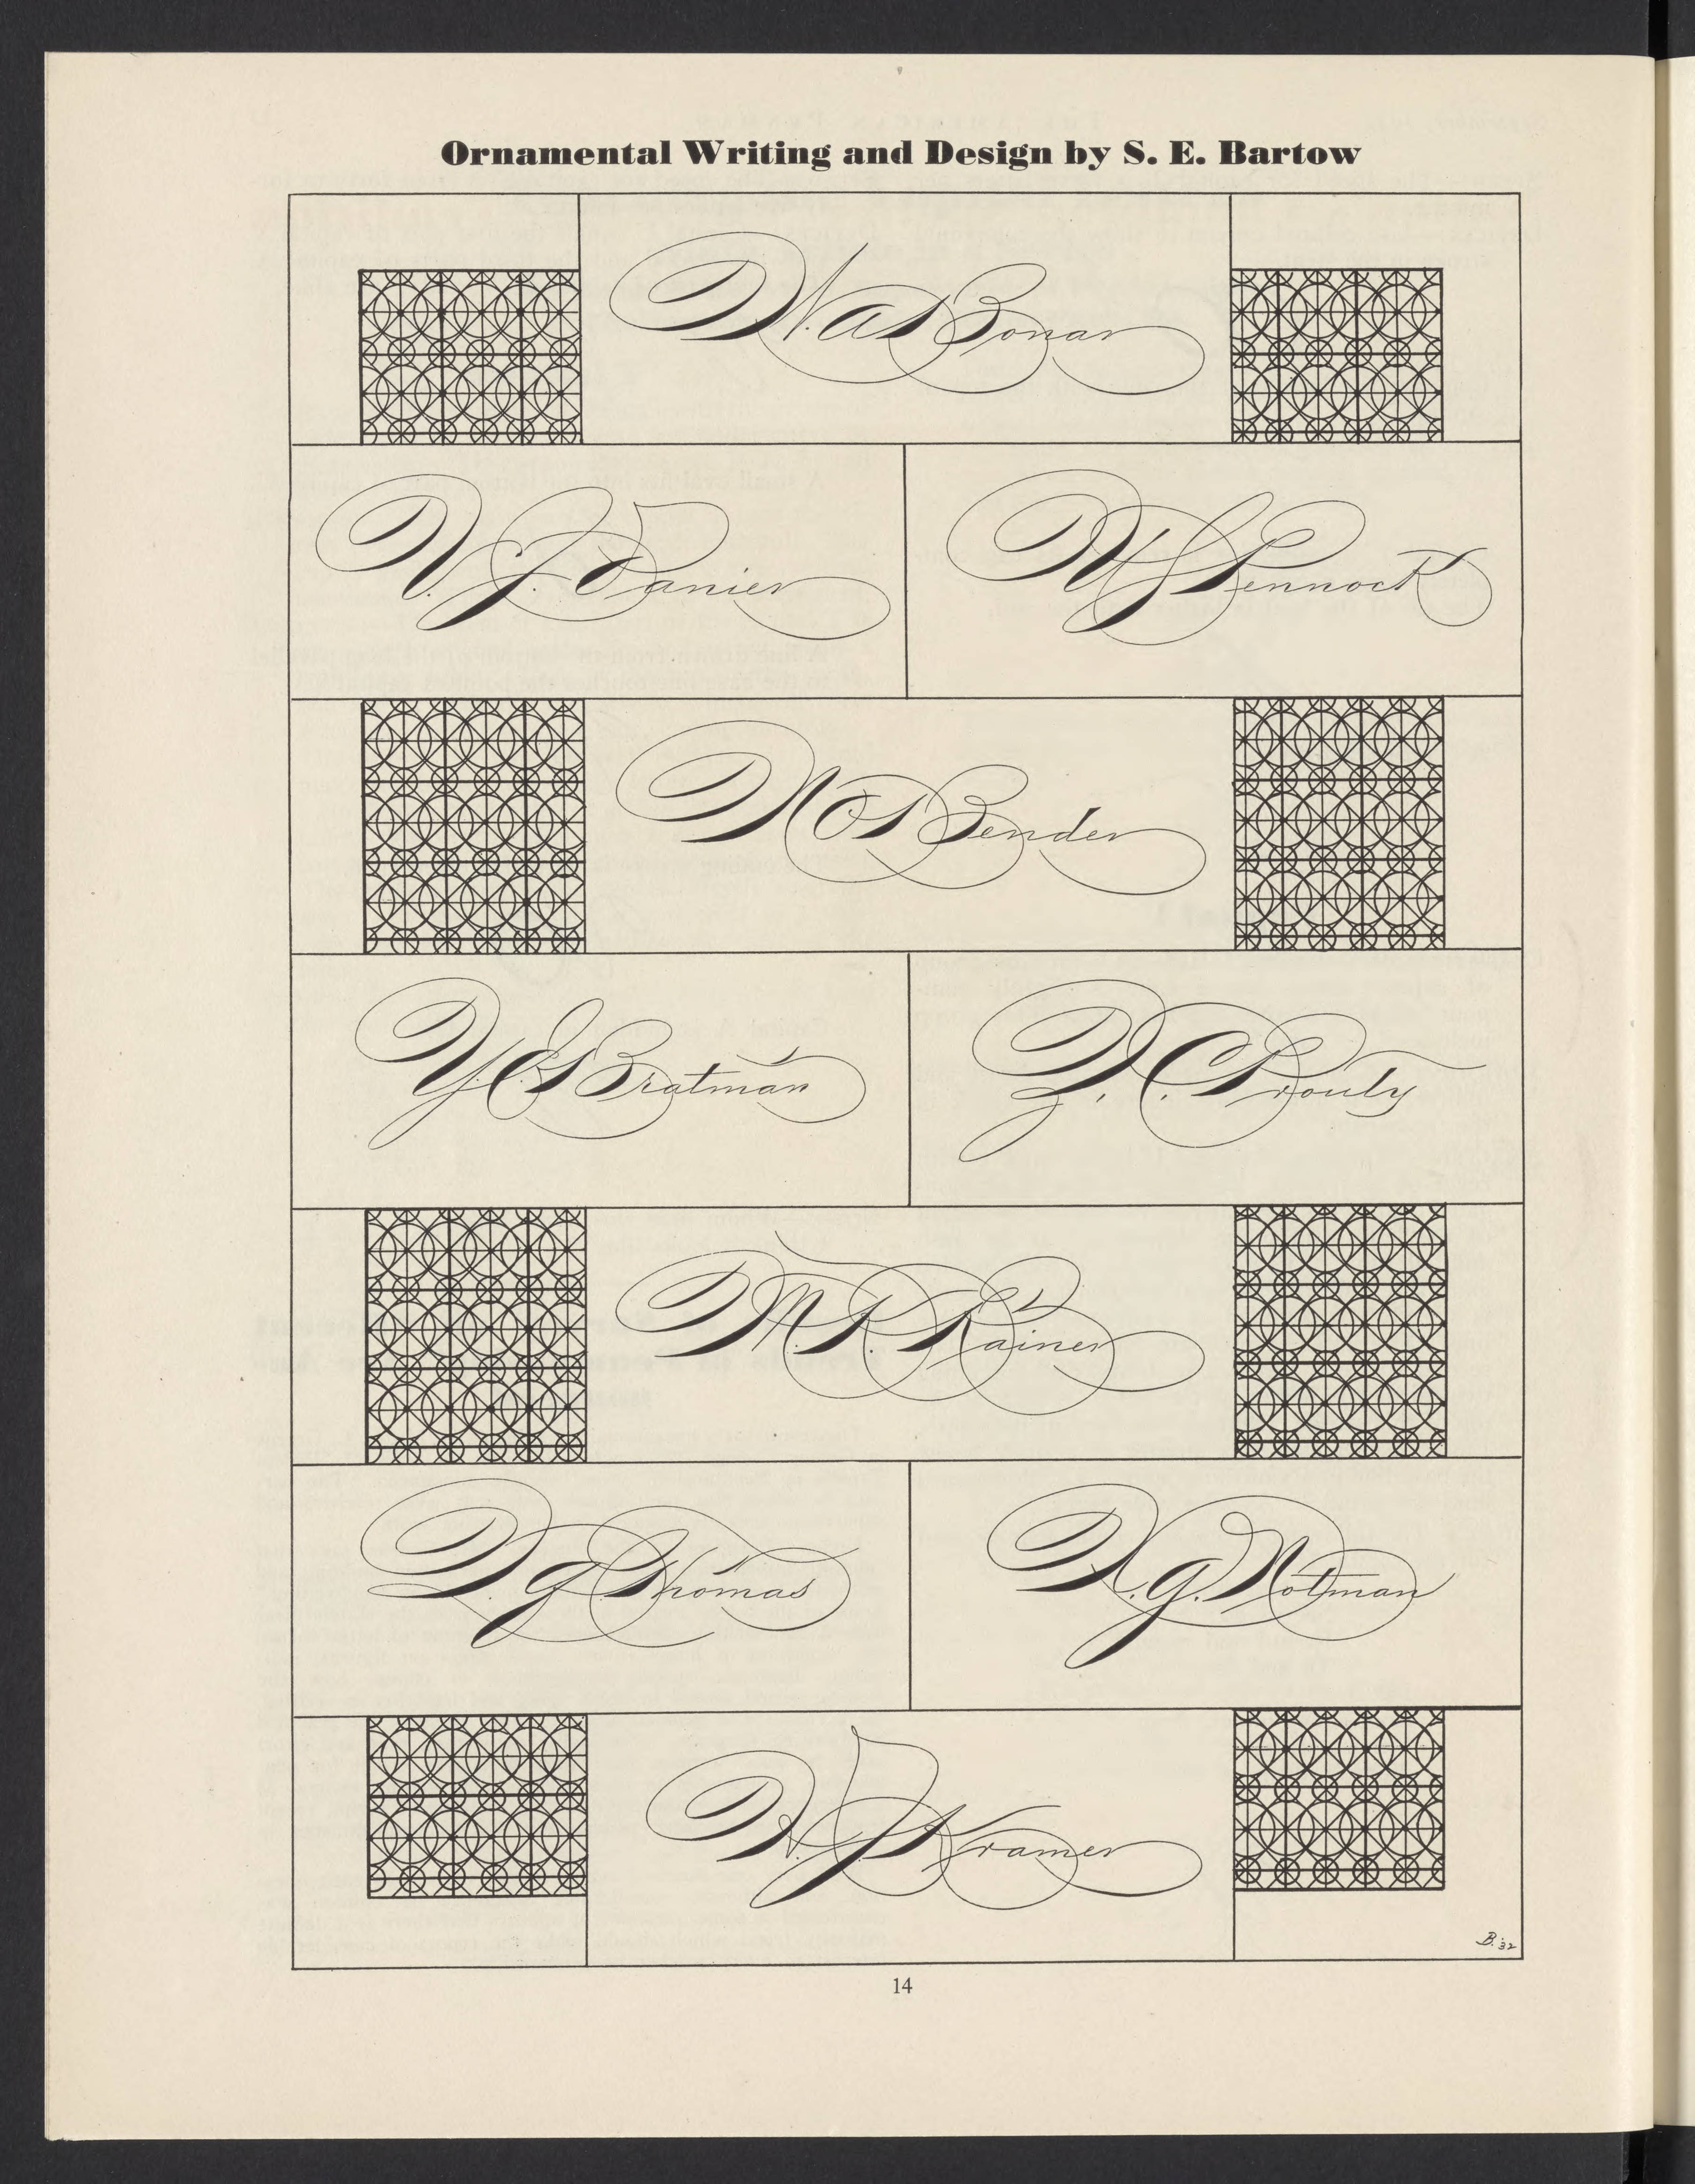 Ornamental Writing and Design by S. E. Bartow
W. A. Bonar
V. J. Danier
W. S. Pennock
N. O. Bender
Y. E. Bratman
Z. C. Prouty
M. R. Rainer
Thomas
X. G. Notman
Kramer
B. '32
14